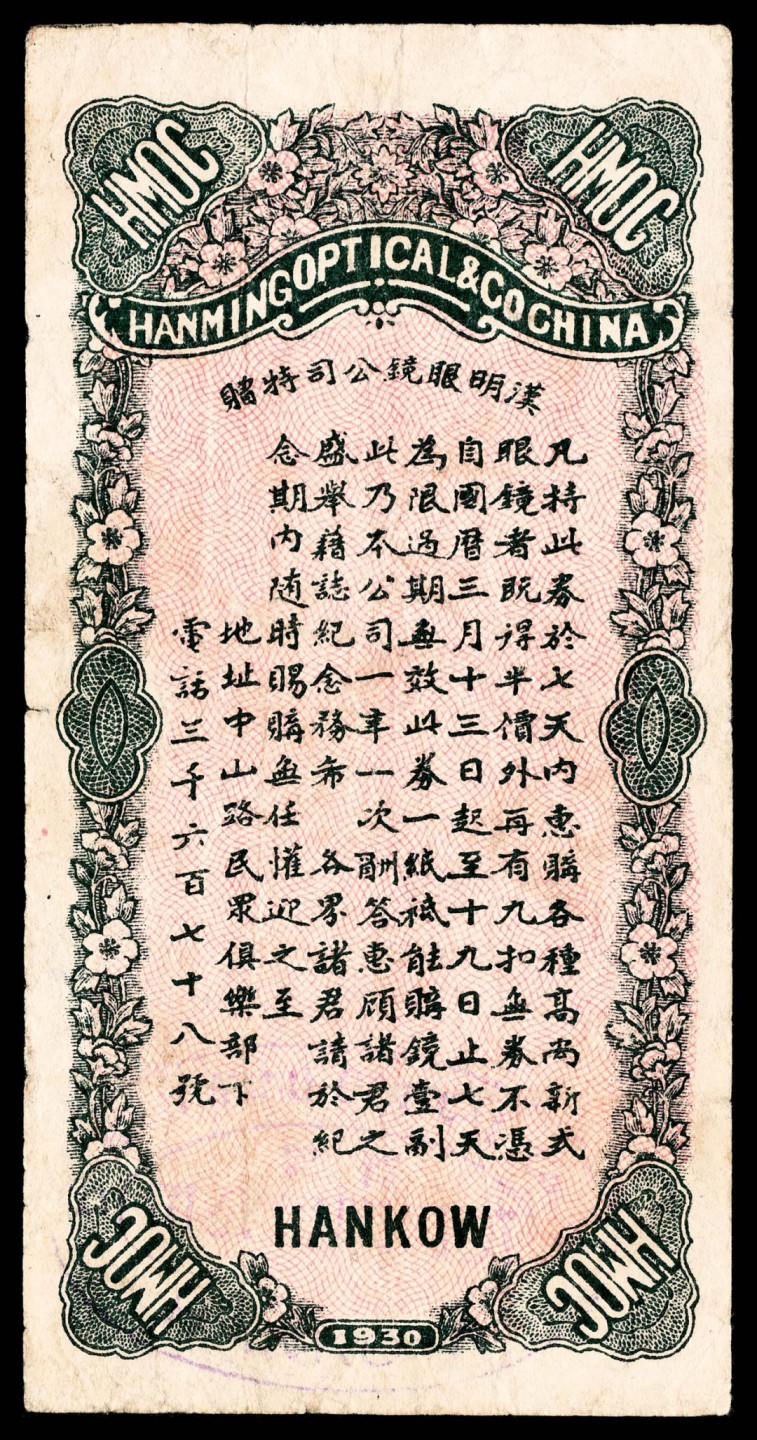 HMOC
HMOC
HANMING OPTICAL & CO CHINA
漢明眼鏡公司特贈
凡持此券於七天內惠購各種高尚新式
眼鏡者既得半價外再有九扣無券不憑
自國曆三月十三日起至十九日止七天
為限過期無效此券一紙祗能購鏡壹副
此乃本公司一年一次酬答惠顧諸君之
盛舉藉誌紀念務希 各界諸君請於紀
念期內随時賜購無任懽迎之至
地址中山路民眾俱樂部下
電話三千六百七十八號
HANKOW
HMOC
HMOC
1930